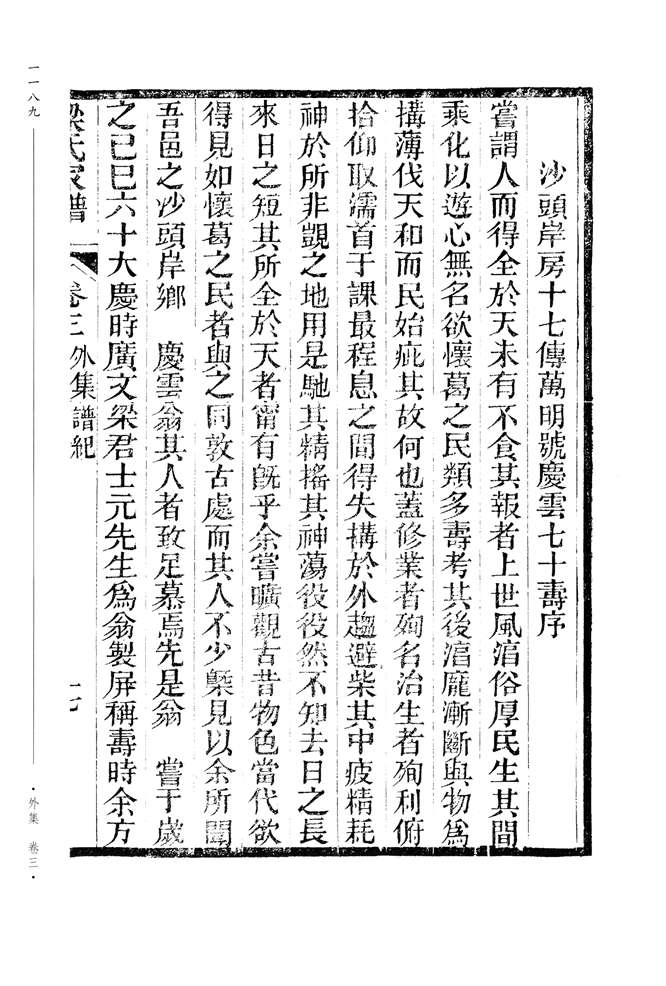 沙頭岸房十七傳萬明號慶雲七十壽序
嘗謂人而得全於天未有不食其報者上世風湻俗厚民生其間
乘化以遊心無名欲懷葛之民類多壽考其後湻厖漸斷與物爲
搆薄伐天和而民始疵其故何也蓋修業者殉名治生者殉利俯
拾仰取濡首于課最程息之間得失搆於外趨避柴其中疲精耗
神於所非覬之地用是馳其精搖其神蕩役役然不知去日之長
來日之短其所全於天者甯有旣乎余嘗曠觀古昔物色當代欲
得見如懷葛之民者與之同敦古處而其人不少槩見以余所聞
吾邑之沙頭岸鄉 慶雲翁其人者致足慕焉先是翁 嘗于歲
之己巳六十大慶時廣文梁君士元先生爲翁製屏稱壽時余方
梁氏家譜 卷三 外集譜紀 十七
一一八九
·外集 卷三·